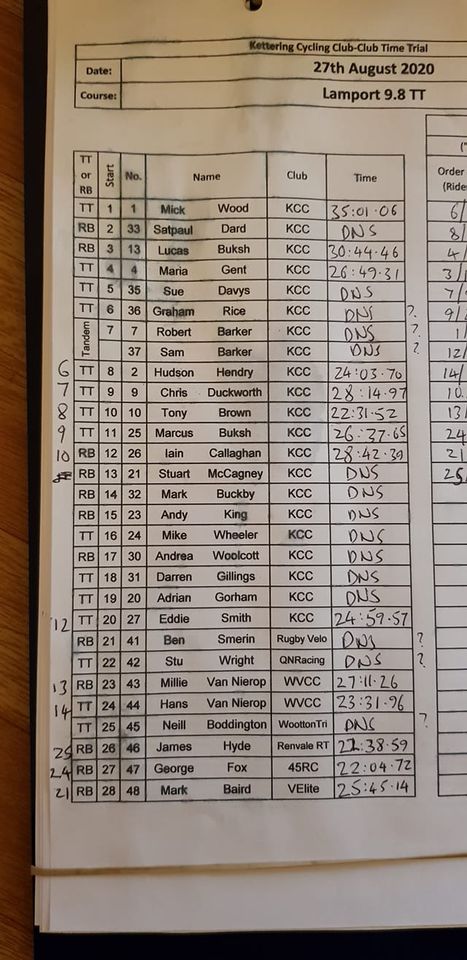 Kettering Cycling Club-Club Time Trial
Date: 27th August 2020
Course: Lamport 9.8 TT
TT or RB Start No. Name Club Time Order
(Ride
TT 1 1 Mick Wood KCC 35:01.06 6/
RB 2 33 Satpaul Dard KCC DNS 8/
RB 3 13 Lucas Buksh KCC 30:44.46 4/
TT 4 4 Maria Gent KCC 26:49.31 3/
TT 5 35 Sue Davys KCC DNS 7/
TT 6 36 Graham Rice KCC DNS ? 9/
Tandem 7 7 Robert Barker KCC DNS ? 1/
37 Sam Barker KCC DNS ? 12/
6 TT 8 2 Hudson Hendry KCC 24:03.70 14/
7 TT 9 9 Chris Duckworth KCC 28:14.97 10
8 TT 10 10 Tony Brown KCC 22:31.52 13/
9 TT 11 25 Marcus Buksh KCC 26:37.65 24
10 RB 12 26 Iain Callaghan KCC 28:42.39 21
RB 13 21 Stuart McCagney KCC DNS 25/
RB 14 32 Mark Buckby KCC DNS
RB 15 23 Andy King KCC DNS
TT 16 24 Mike Wheeler KCC DNS
RB 17 30 Andrea Woolcott KCC DNS
TT 18 31 Darren Gillings KCC DNS
TT 19 20 Adrian Gorham KCC DNS
12 TT 20 27 Eddie Smith KCC 24:59.57
RB 21 41 Ben Smerin Rugby Velo DNS ?
TT 22 42 Stu Wright QNRacing DNS ?
13 RB 23 43 Millie Van Nierop WVCC 27:11.26
14 TT 24 44 Hans Van Nierop WVCC 23:31.96
TT 25 45 Neill Boddington WoottonTri DNS ?
25 RB 26 46 James Hyde Renvale RT :38.59
24 RB 27 47 George Fox 45RC 22:04.72
21 RB 28 48 Mark Baird VElite 25:45.14